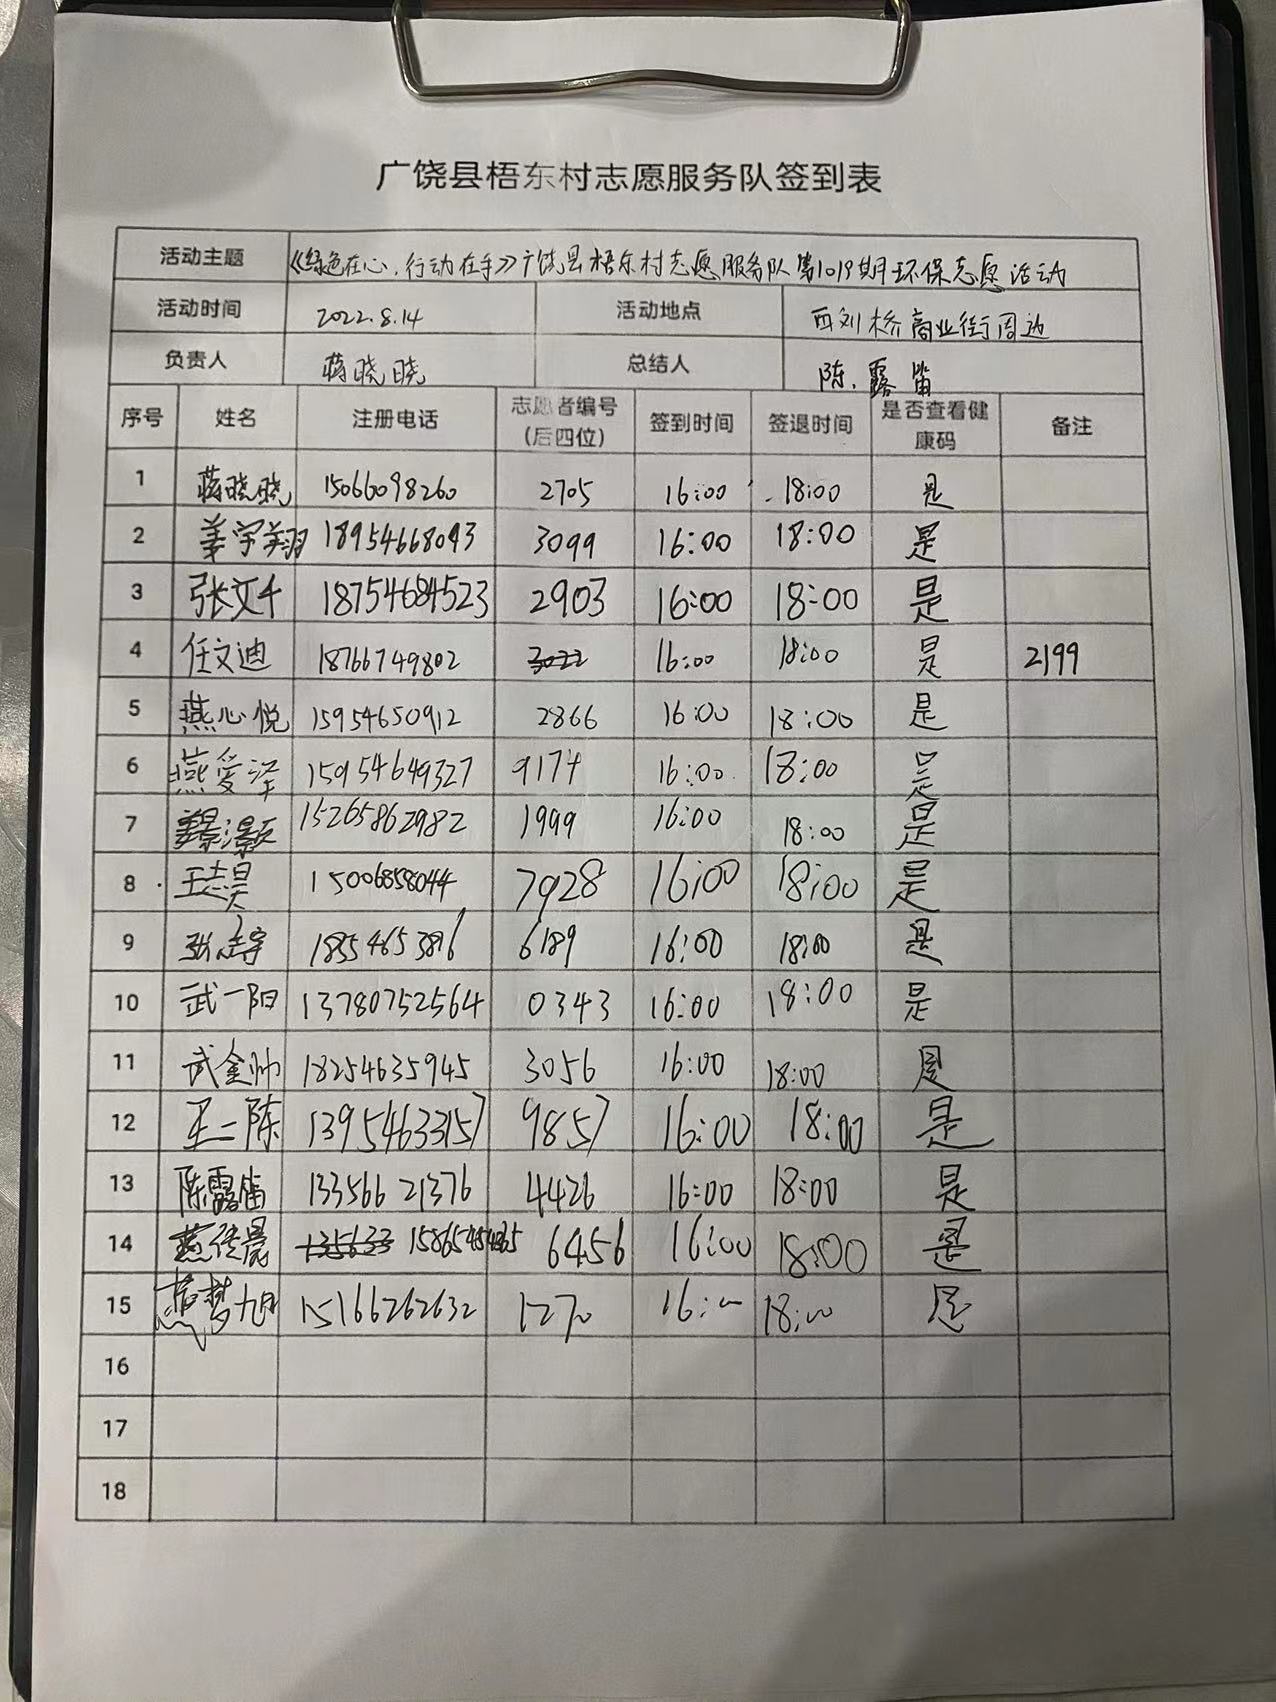 广饶县梧东村志愿服务队签到表
活动主题 《绿色在心，行动在手》广饶县梧东村志愿服务队第1019期环保志愿活动
活动时间 2022.8.14 活动地点 西刘桥商业街周边
负责人 蒋晓晓 总结人 陈露笛
序号 姓名 注册电话 志愿者编号（后四位） 签到时间 签退时间 是否查看健康码 备注
1 蒋晓晓 15066098260 2705 16:00 18:00 是
2 姜宇翔 18954668093 3099 16:00 18:00 是
3 张文千 18754684523 2903 16:00 18:00 是
4 任文迪 18766749802 3022 16:00 18:00 是 2199
5 燕心悦 15954650912 2866 16:00 18:00 是
6 燕爱泽 15954649327 9174 16:00 18:00 是
7 15265862982 1999 16:00 18:00 是
8 王志昊 15006858044 7928 16:00 18:00 是
9 张志宇 6189 16:00 18:00 是
10 武一阳 13780752564 0343 16:00 18:00 是
11 武金帅 18254635945 3056 16:00 18:00 是
12 王二陈 13954633157 9857 16:00 18:00 是
13 陈露笛 13356621376 4426 16:00 18:00 是
14 135633 6456 16:00 18:00 是
15 15166262632 1270 16:00 18:00 是
16
17
18